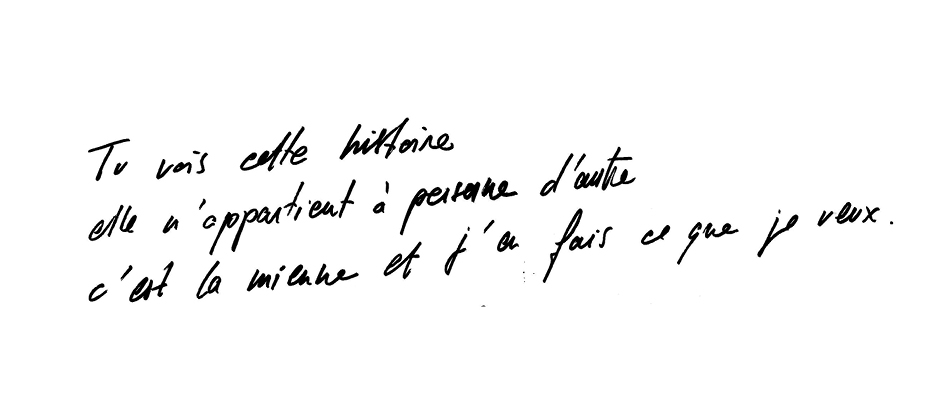 Tu vois cette histoire
elle n'appartient à personne d'autre
c'est la mienne et j'en fais ce que je veux.